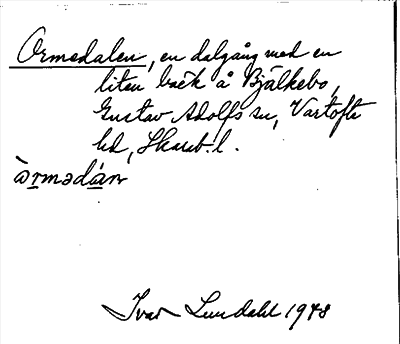 Ormedalen, en dalgång med en
liten bäck å Bjälkebo,
Gustav Adolfs sn, Vartofta
hd, Skarab. l.
òrmədán
Ivar Lundahl 1948